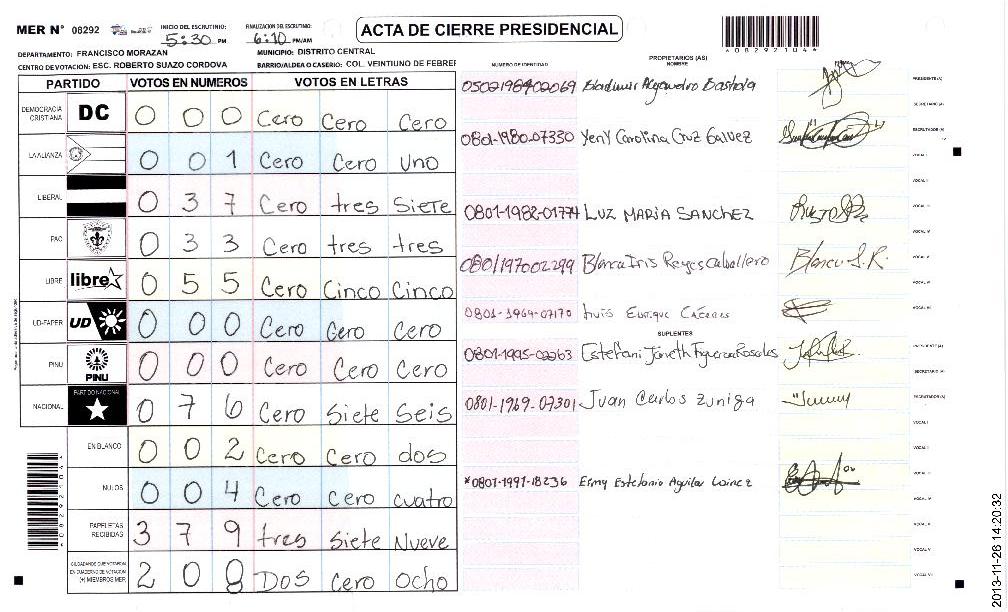 MER N° 08292
INICIO DEL ESCRUTINIO: 5:30 PM
FINALIZACION DEL ESCRUTINIO: 6:10 PM/AM
ACTA DE CIERRE PRESIDENCIAL
*08292104*
DEPARTAMENTO: FRANCISCO MORAZAN
MUNICIPIO: DISTRITO CENTRAL
CENTRO DE VOTACION: ESC. ROBERTO SUAZO CORDOVA
BARRIO/ALDEA O CASERIO: COL. VEINTIUNO DE FEBRER
PARTIDO VOTOS EN NUMEROS VOTOS EN LETRAS
DEMOCRACIA CRISTIANA DC 0 0 0 Cero Cero Cero
LA ALIANZA 0 0 1 Cero Cero Uno
LIBERAL 0 3 7 Cero tres Siete
PAC 0 3 3 Cero tres tres
LIBRE libre 0 5 5 Cero Cinco Cinco
UD-FAPER UD 0 0 0 Cero Cero Cero
PINU PINU 0 0 0 Cero Cero Cero
NACIONAL PARTIDO NACIONAL 0 7 6 Cero Siete Seis
EN BLANCO 0 0 2 Cero Cero dos
NULOS 0 0 4 Cero cero cuatro
PAPELETAS RECIBIDAS 3 7 9 tres Siete Nueve
CIUDADANOS QUE VOTARON EN CUADERNO DE VOTACION (+) MIEMBROS MER 2 0 8 Dos Cero Ocho
NUMERO DE IDENTIDAD
PROPIETARIOS (AS)
NOMBRE
0502198402069
PRESIDENTE(A)
SECRETARIO(A)
0801-1980-07330 Yeny Carolina Cruz Galvez
ESCRUTADOR(A)
VOCAL I
VOCAL II
0801-1982-01774 LUZ MARIA SANCHEZ
VOCAL III
VOCAL IV
0801197002299 Blanca Iris Reyes Caballero Blanca I. R.
VOCAL V
VOCAL VI
0801-1969-07170 Luis Enrique Cáceres
VOCAL VII
SUPLENTES
0801-1995-02263 Estefani Janeth Figueroa Rosales
PRESIDENTE(A)
SECRETARIO(A)
0801-1969-07301 Juan Carlos Zuniga
ESCRUTADOR(A)
VOCAL I
VOCAL II
VOCAL III
*0801-1991-18236
VOCAL IV
VOCAL V
VOCAL VI
VOCAL VII
2013-11-26 14:20:32